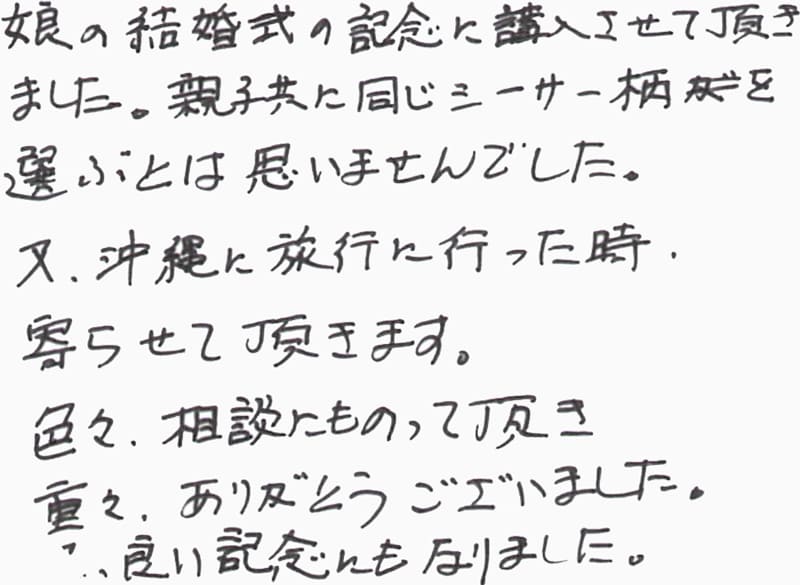 娘の結婚式の記念に講入させて頂き
ました。親子共に同じシーサー柄を
選ぶとは思いませんでした。
又、沖縄に旅行に行った時、
寄らせて頂きます。
色々、相談にものって頂き
重々、ありがとうございました。
良い記念にもなりました。